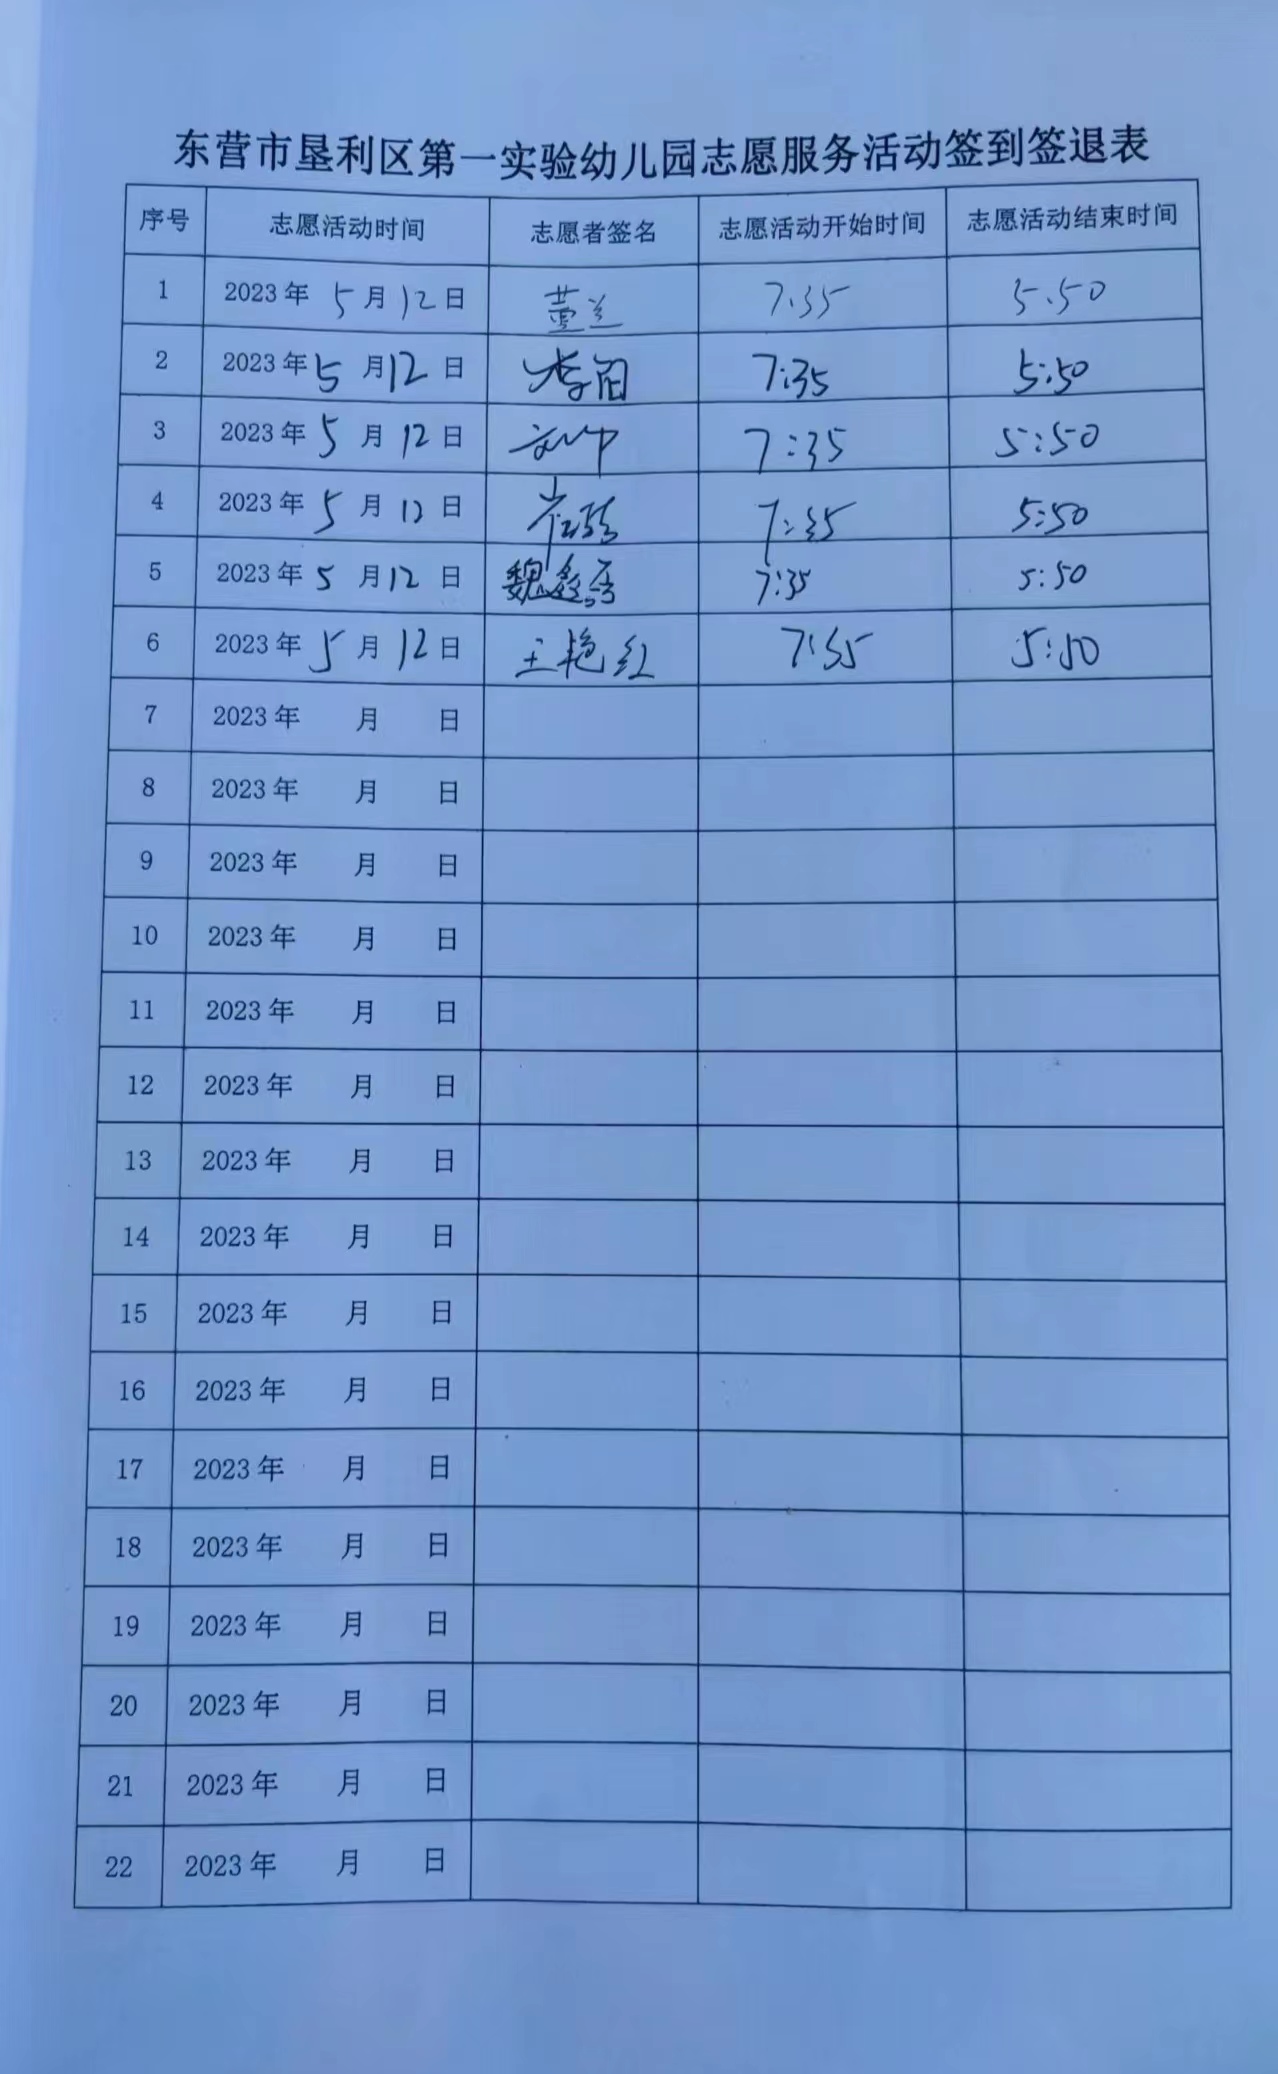 东营市垦利区第一实验幼儿园志愿服务活动签到签退表
序号 志愿活动时间 志愿者签名 志愿活动开始时间 志愿活动结束时间
1 2023年 5月12日 7:35 5:50
2 2023年5月12日 7:35 5:50
3 2023年 5月12日 7:35 5:50
4 2023年 5月12日 7:35 5:50
5 2023年5月12日 7:35 5:50
6 2023年 5月12日 王艳红 7:35 5:50
7 2023年 月 日
8 2023年 月 日
9 2023年 月 日
10 2023年 月 日
11 2023年 月 日
12 2023年 月 日
13 2023年 月 日
14 2023年 月 日
15 2023年 月 日
16 2023年 月 日
17 2023年 月 日
18 2023年 月 日
19 2023年 月 日
20 2023年 月 日
21 2023年 月 日
22 2023年 月 日